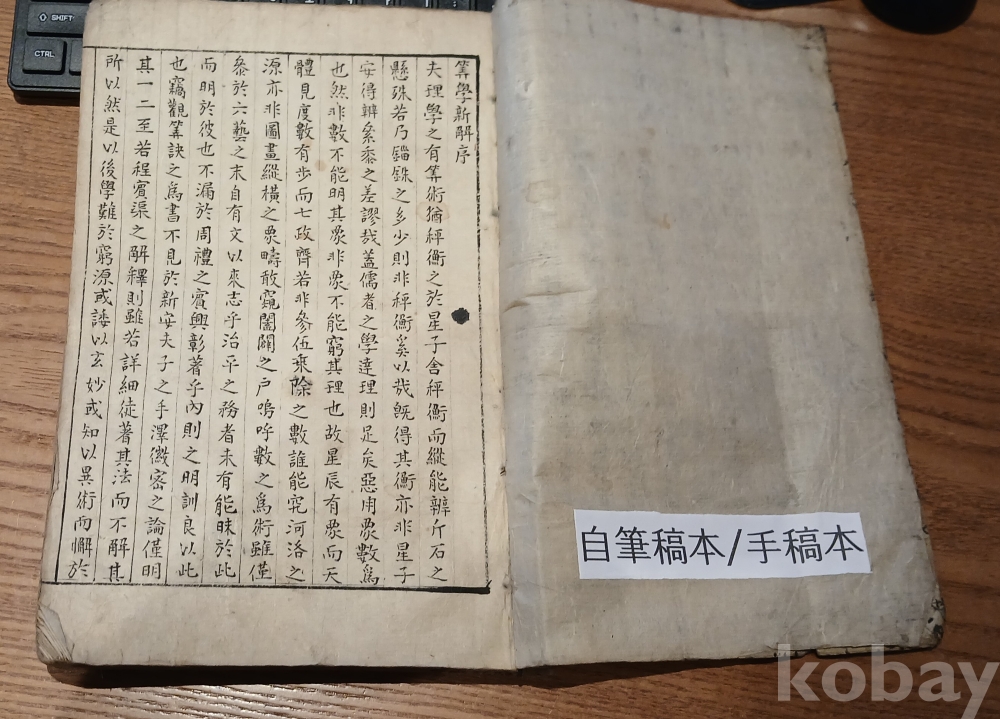 筭學新解序
夫理學之有筭術猶秤衡之於星子舍秤衡而縱能辨斤石之
懸殊若乃錙銖之多少則非秤衡奚以哉旣得其衡亦非星子
安得辨絫黍之差謬哉蓋儒者之學達理則足矣惡用象數爲
也然非數不能明其象非象不能窮其理也故星辰有象而天
體見度數有步而七政齊若非參伍乘除之數誰能究河洛之
源亦非圖畫縱橫之象疇敢窺闔闢之戶嗚呼數之爲術雖僅
叅於六藝之末自有文以來志乎治平之務者未有能昧於此
而明於彼也不漏於周禮之賓興彰著乎內則之明訓良以此
也竊觀筭訣之爲書不見於新安夫子之手澤微密之論僅明
其一二至若程賓渠之解釋則雖若詳細徒著其法而不解其
所以然是以後學難於窮源或諉以玄妙或知以異術而懈於
自筆稿本/手稿本
SHIFT
CTRL
kobay